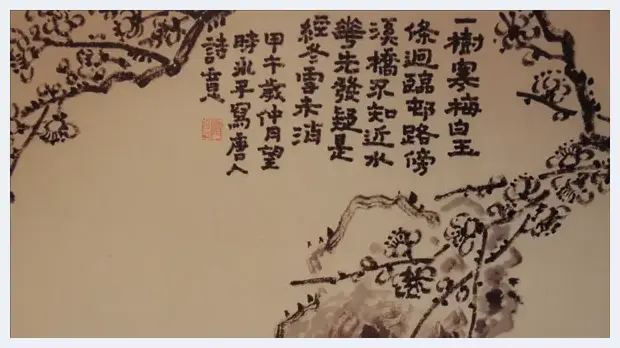 一樹寒梅白玉
條迥臨邨路傍
溪橋不知近水
華先發疑是
經冬雪未消
甲午歲仲月望
時永平寫唐人
詩意